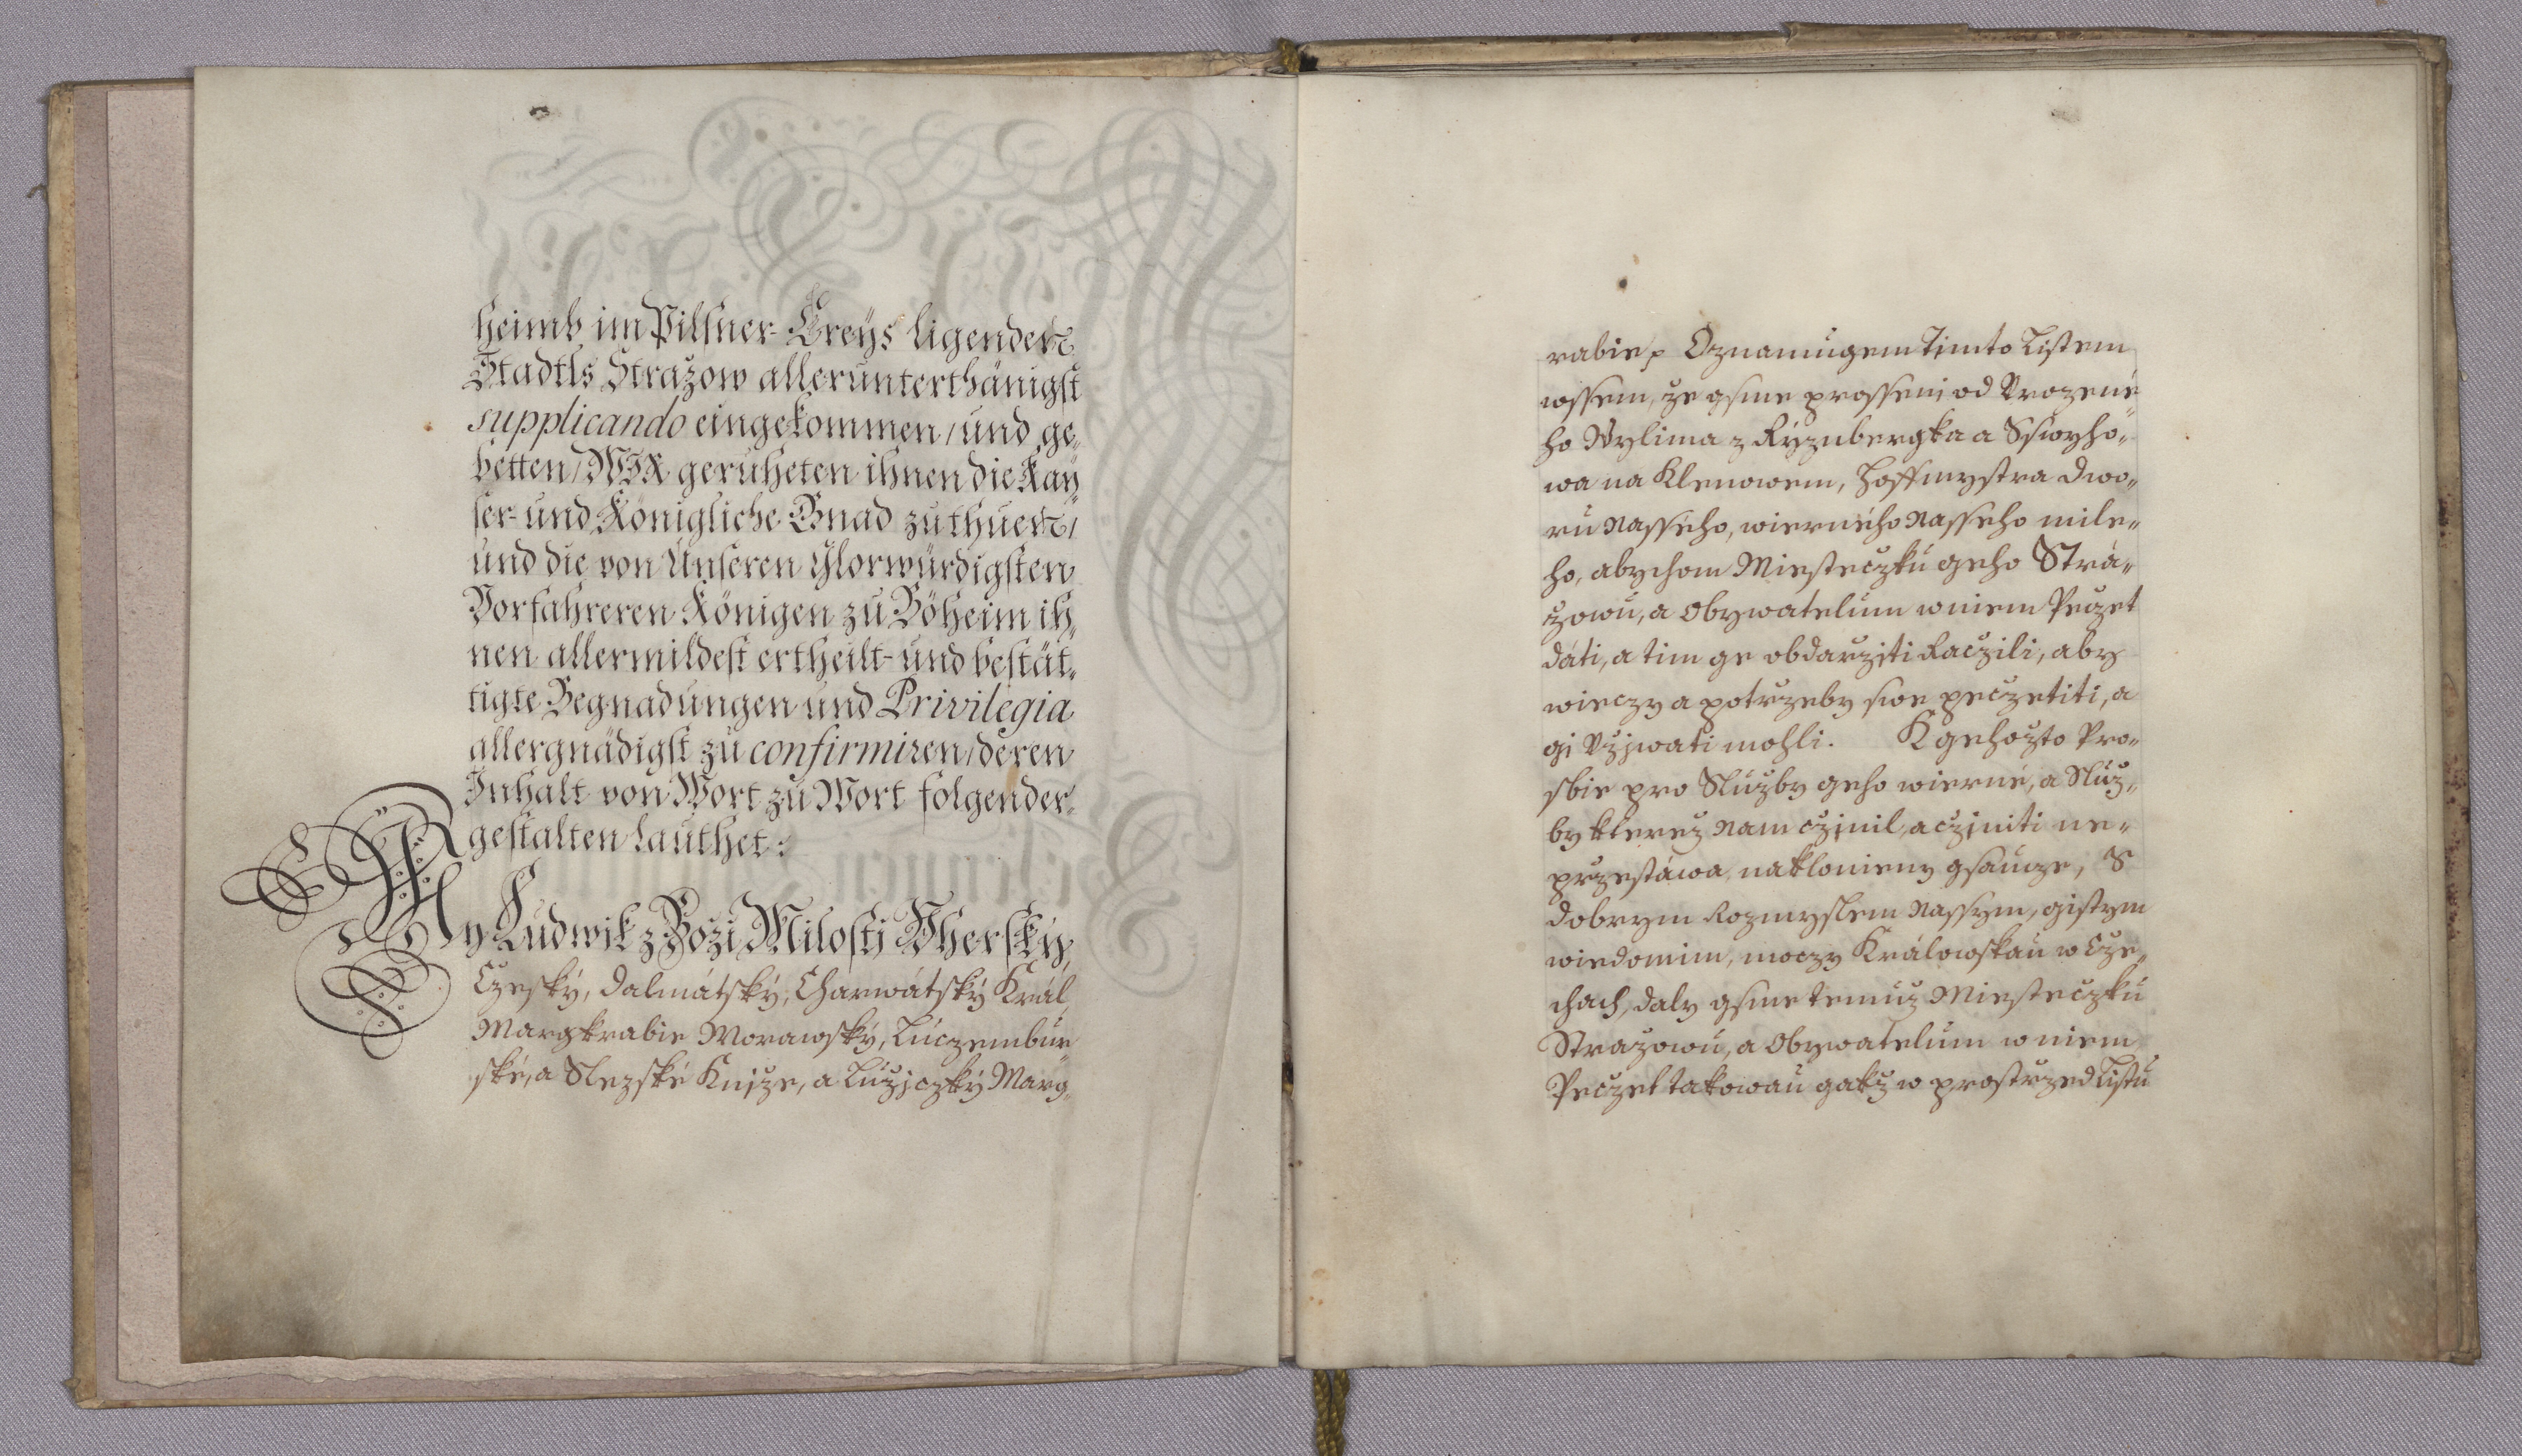 heimb im Pilsner-Creÿs ligenden
Stadtls Strazow allerunterthänigst
supplicando eingekommen / und ge„
betten / WIR geruheten ihnen die Kaÿ„
ser- und Königliche Gnad zu thuen /
und die von Unseren Glorwürdigsten
Vorfahreren Königen zu Böheim ih„
nen allermildest ertheilt- und bestät„
tigte Begnadungen und Privilegia
allergnädigst zu confirmiren / deren
Inhalt von Wort zu Wort folgender„
gestalten lauthet:
My Ludwik z Boži Milosti Vherský,
Czeský, Dalmátský, Charwátský Král,
Margkrabie Morawský, Lúczembúr„
ské, a Slezské Knjže, a Lúžjczký Marg„
rabie ꝛ Oznamugem Tjmto Listem
wssem, že gsme prosseni od Vrozené„
ho Wylima z Ryznbergka a Sswyho„
wa na Klenowem, Hoffmystra Dwo„
rú Nasseho, wierného Nasseho mile„
ho, abychom Miesteczkú geho Stra„
žowú, a Obywatelúm w niem Peczet
dáti, a tim ge obdarziti Raczili, aby
wieczy a potrzeby swe peczetiti, a
gi Vžjwati mohli. K gehožto Pro„
sbie pro Slúžby geho wierné, a Slúž„
by kterez Nam czjnil, a czjniti ne„
przestáwa, naklonieny gsaucze, S
dobrym Rozmyslem Nassym, gistym
wiedomim, moczy Králowskaú w Cze„
chach, daly gsme temúž Miesteczkú
Stražowú, a Obywatelúm w niem
Peczet takowaú gakž w prostrzed Listú